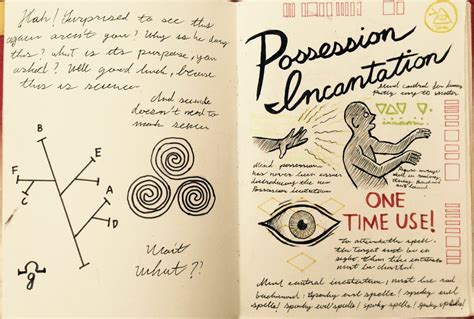 Hah! Surprised to see this
again aren't you? Why is he doing
this? what is its purpose, you
asked? Well good luck, because
this is science.
And science
doesn't need to
make sense
B
F
E
A
C
D
Wait
what??
Possession
Incantation
Mind control for
Pretty easy to master
Mind possession
has never been easier
introducing the new
Possession incantation
ONE
TIME USE!
To the spell,
the target must be in
sight. Then the
must be chanted.
Mind control incantation, must be read
backward: Spooky evil spells! spooky evil
spells! Spooky evil spells! spooky evil spells!